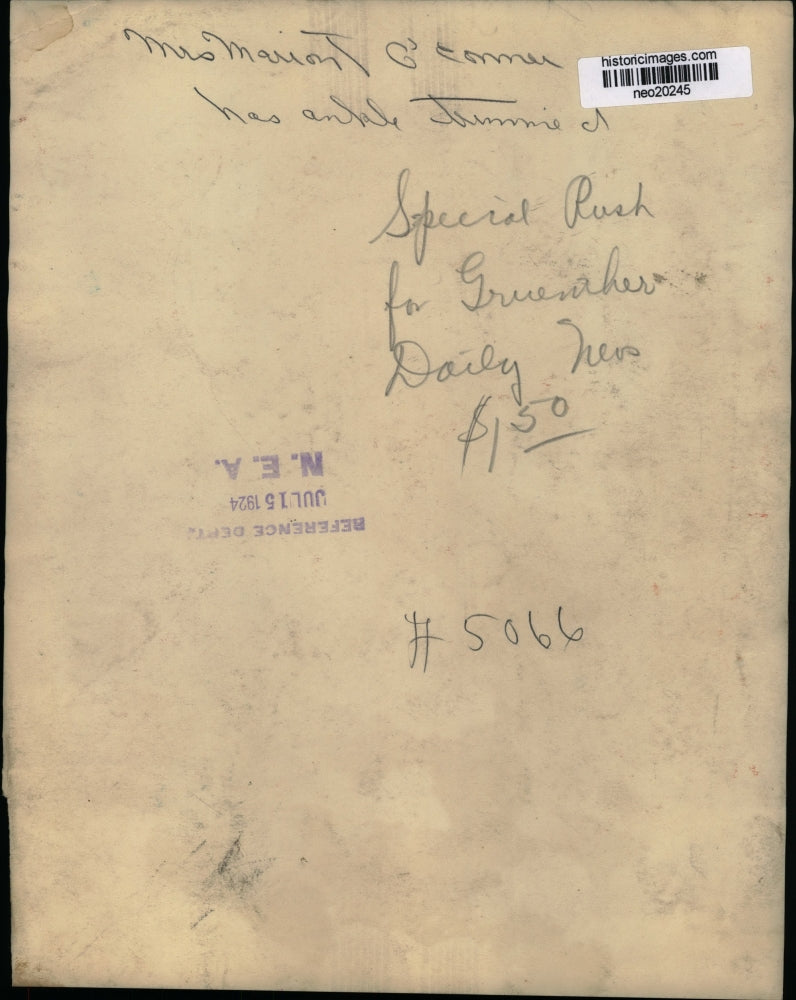 Mrs Marion O'Conner
historicimages.com
neo20245
has ankle trimmed
Special Rush
for Gruenther
Daily News
$1.50
N. E. A.
JUL 15 1924
REFERENCE DEPT.
# 5066